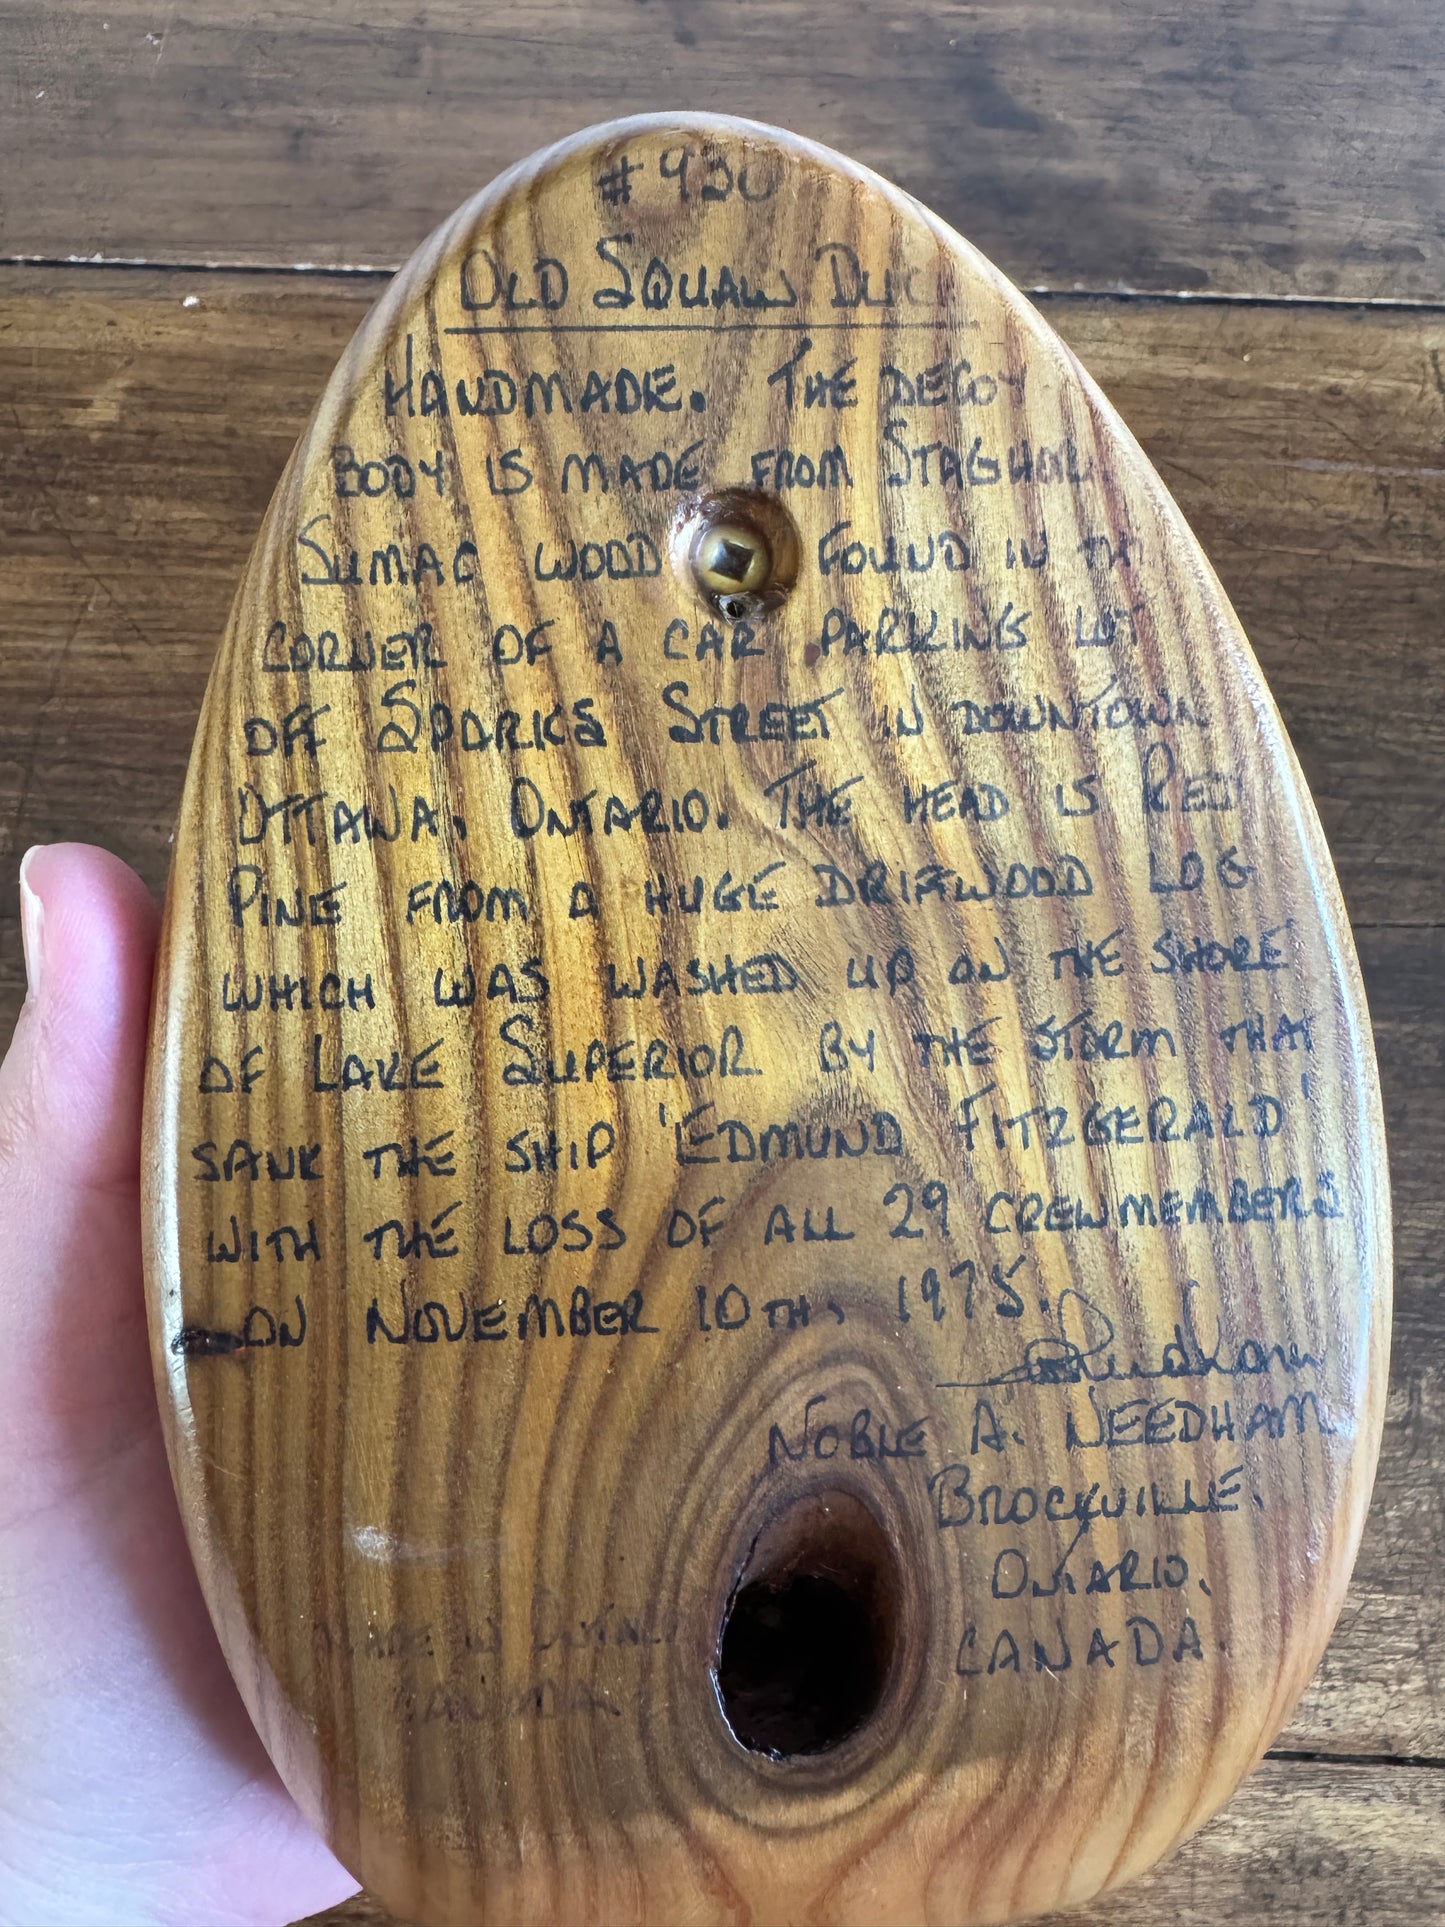 #920
OLD SQUAW DUC
HANDMADE. THE DECOY
BODY IS MADE FROM STAGHOR
SUMAC WOOD FOUND IN TH
CORNER OF A CAR PARKING LOT
OFF SPARKS STREET IN DOWNTOWN
OTTAWA, ONTARIO. THE HEAD IS RED
PINE FROM A HUGE DRIFTWOOD LOG
WHICH WAS WASHED UP ON THE SHORE
OF LAKE SUPERIOR BY THE STORM THAT
SANK THE SHIP 'EDMUND FITZGERALD'
WITH THE LOSS OF ALL 29 CREWMEMBERS
ON NOVEMBER 10TH, 1975.
NOBLE A. NEEDHAM
BROCKVILLE,
ONTARIO,
CANADA.
CANADA